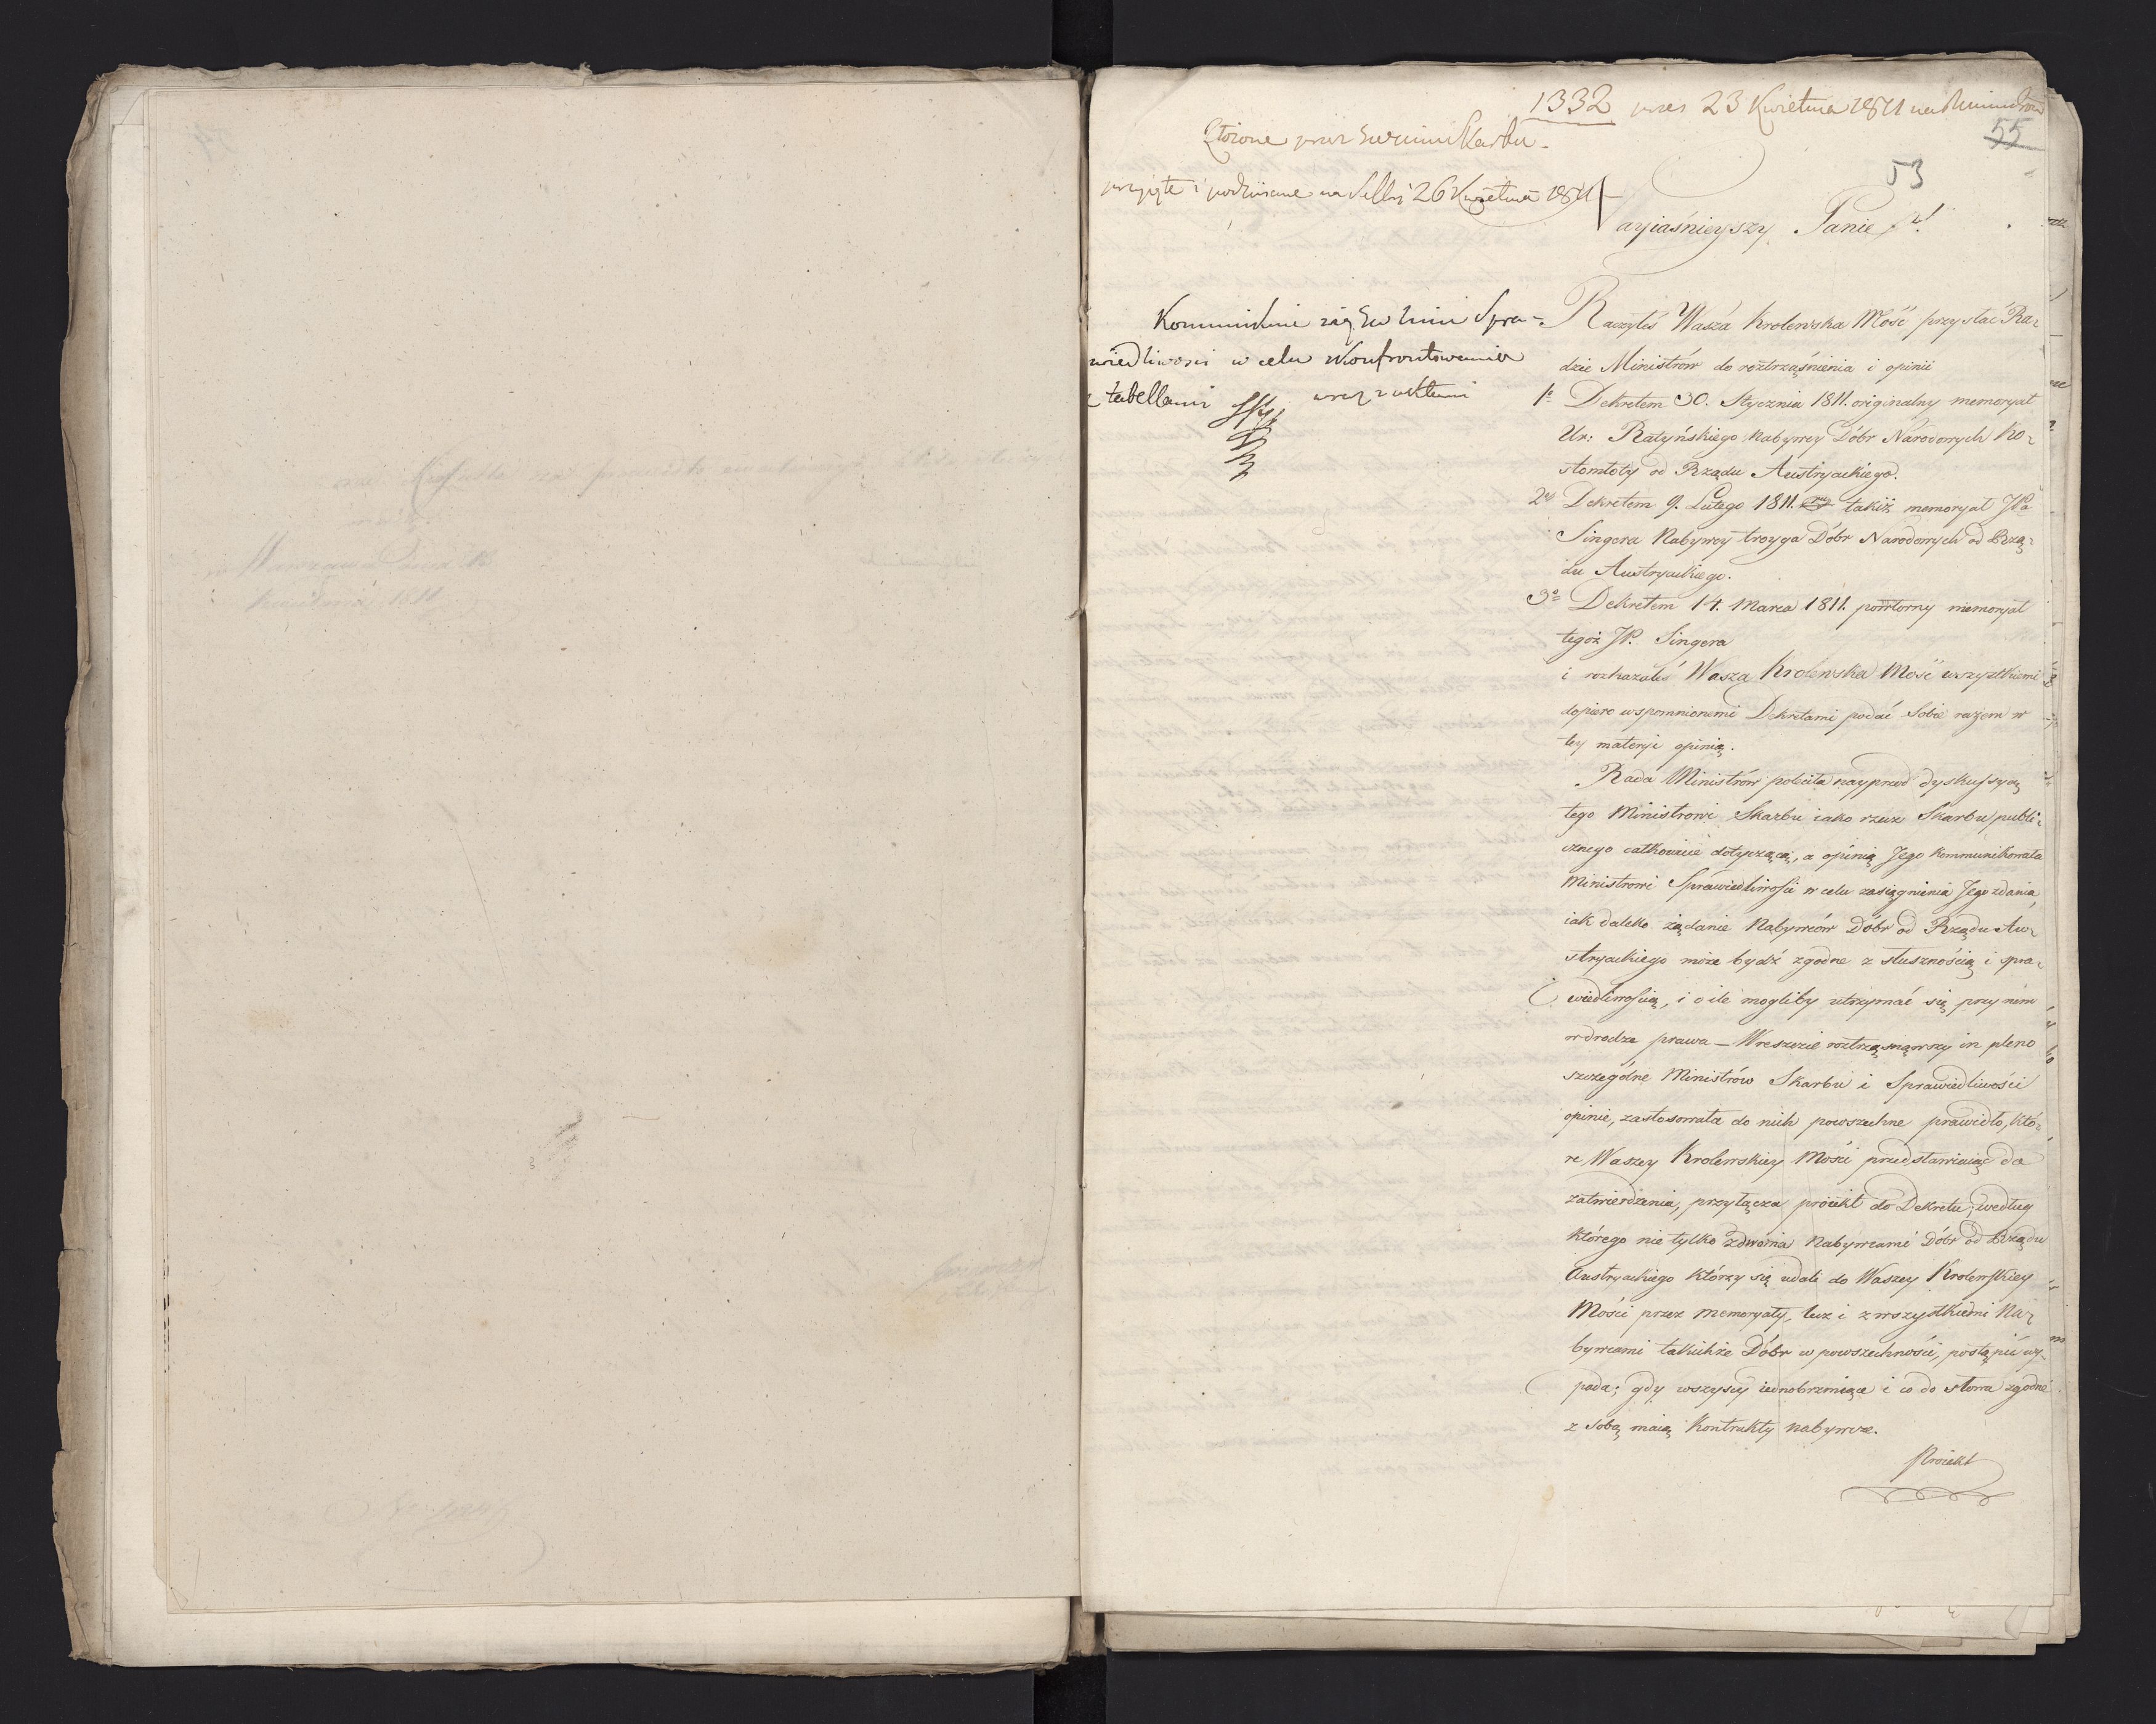 1332 pres 23 Kwietnia 1811 na
55
Złożone przez Skarbu
53
przyięte i podpisane na Sessyi 26 Kwietnia 1811
Nayiaśnieyszy Panie!
Kommunikuie się Spra-
wiedliwości w celu skonfrontowania
z tabellami wraz z aktami
Raczyłeś Wasza Krolewska Mość przysłać Ra-
dzie Ministrów do roztrząśnienia i opinii
1o Dekretem 30. Stycznia 1811. originalny memoryał
Ur: Ratyńskiego Nabywcy Dóbr Narodowych Ko-
stomłoty od Rządu Austryackiego.
2o Dekretem 9. Lutego 1811. takiż memoryał JPa
Singera Nabywcy troyga Dóbr Narodowych od Rzą-
du Austryackiego.
3o Dekretem 14. Marca 1811. powtorny memoryał
tegoż JP. Singera
i rozkazałeś Wasza Krolewska Mość wszystkiemi
dopiero wspomnionemi Dekretami podać Sobie razem w
tey materyi opinią.
Rada Ministrów poleciła nayprzod dyskussyą
tego Ministrowi Skarbu iako rzecz Skarbu publi-
cznego całkowicie dotyczącą, a opinią Jego kommunikowała
Ministrowi Sprawiedliwości w celu zasiągnienia Jego zdania,
iak daleko żądanie Nabywców Dóbr od Rządu Au-
stryackiego może bydź zgodne z słusznością i spra-
wiedliwością, i o ile mogliby utrzymać się przy nim
w drodze prawa — Wreszcie roztrząsnąwszy in pleno
szczególne Ministrów Skarbu i Sprawiedliwości
opinie, zastosowała do nich powszechne prawidło, któ-
re Waszey Krolewskiey Mości przedstawiaiąc do
zatwierdzenia, przyłącza proiekt do Dekretu, według
którego nie tylko z dwoma Nabywcami Dóbr od Rządu
Austryackiego którzy się udali do Waszey Krolewskiey
Mości przez memoryały, lecz i z wszystkiemi Na-
bywcami takichże Dóbr w powszechności, postąpić wy-
pada; gdy wszyscy iednobrzmiące i co do słowa zgodne
z sobą maią Kontrakty nabywcze.
Proiekt